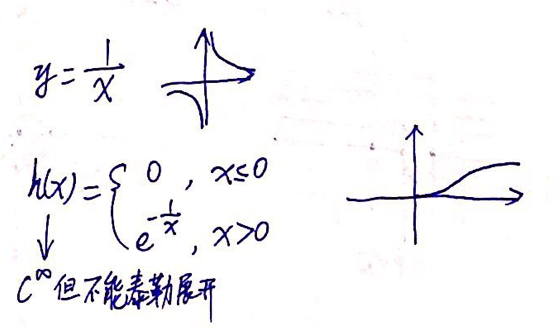 y = 1/x
h(x) = { 0 , x≤0
e^{-1/x} , x>0
↓
C^∞ 但不能泰勒展开